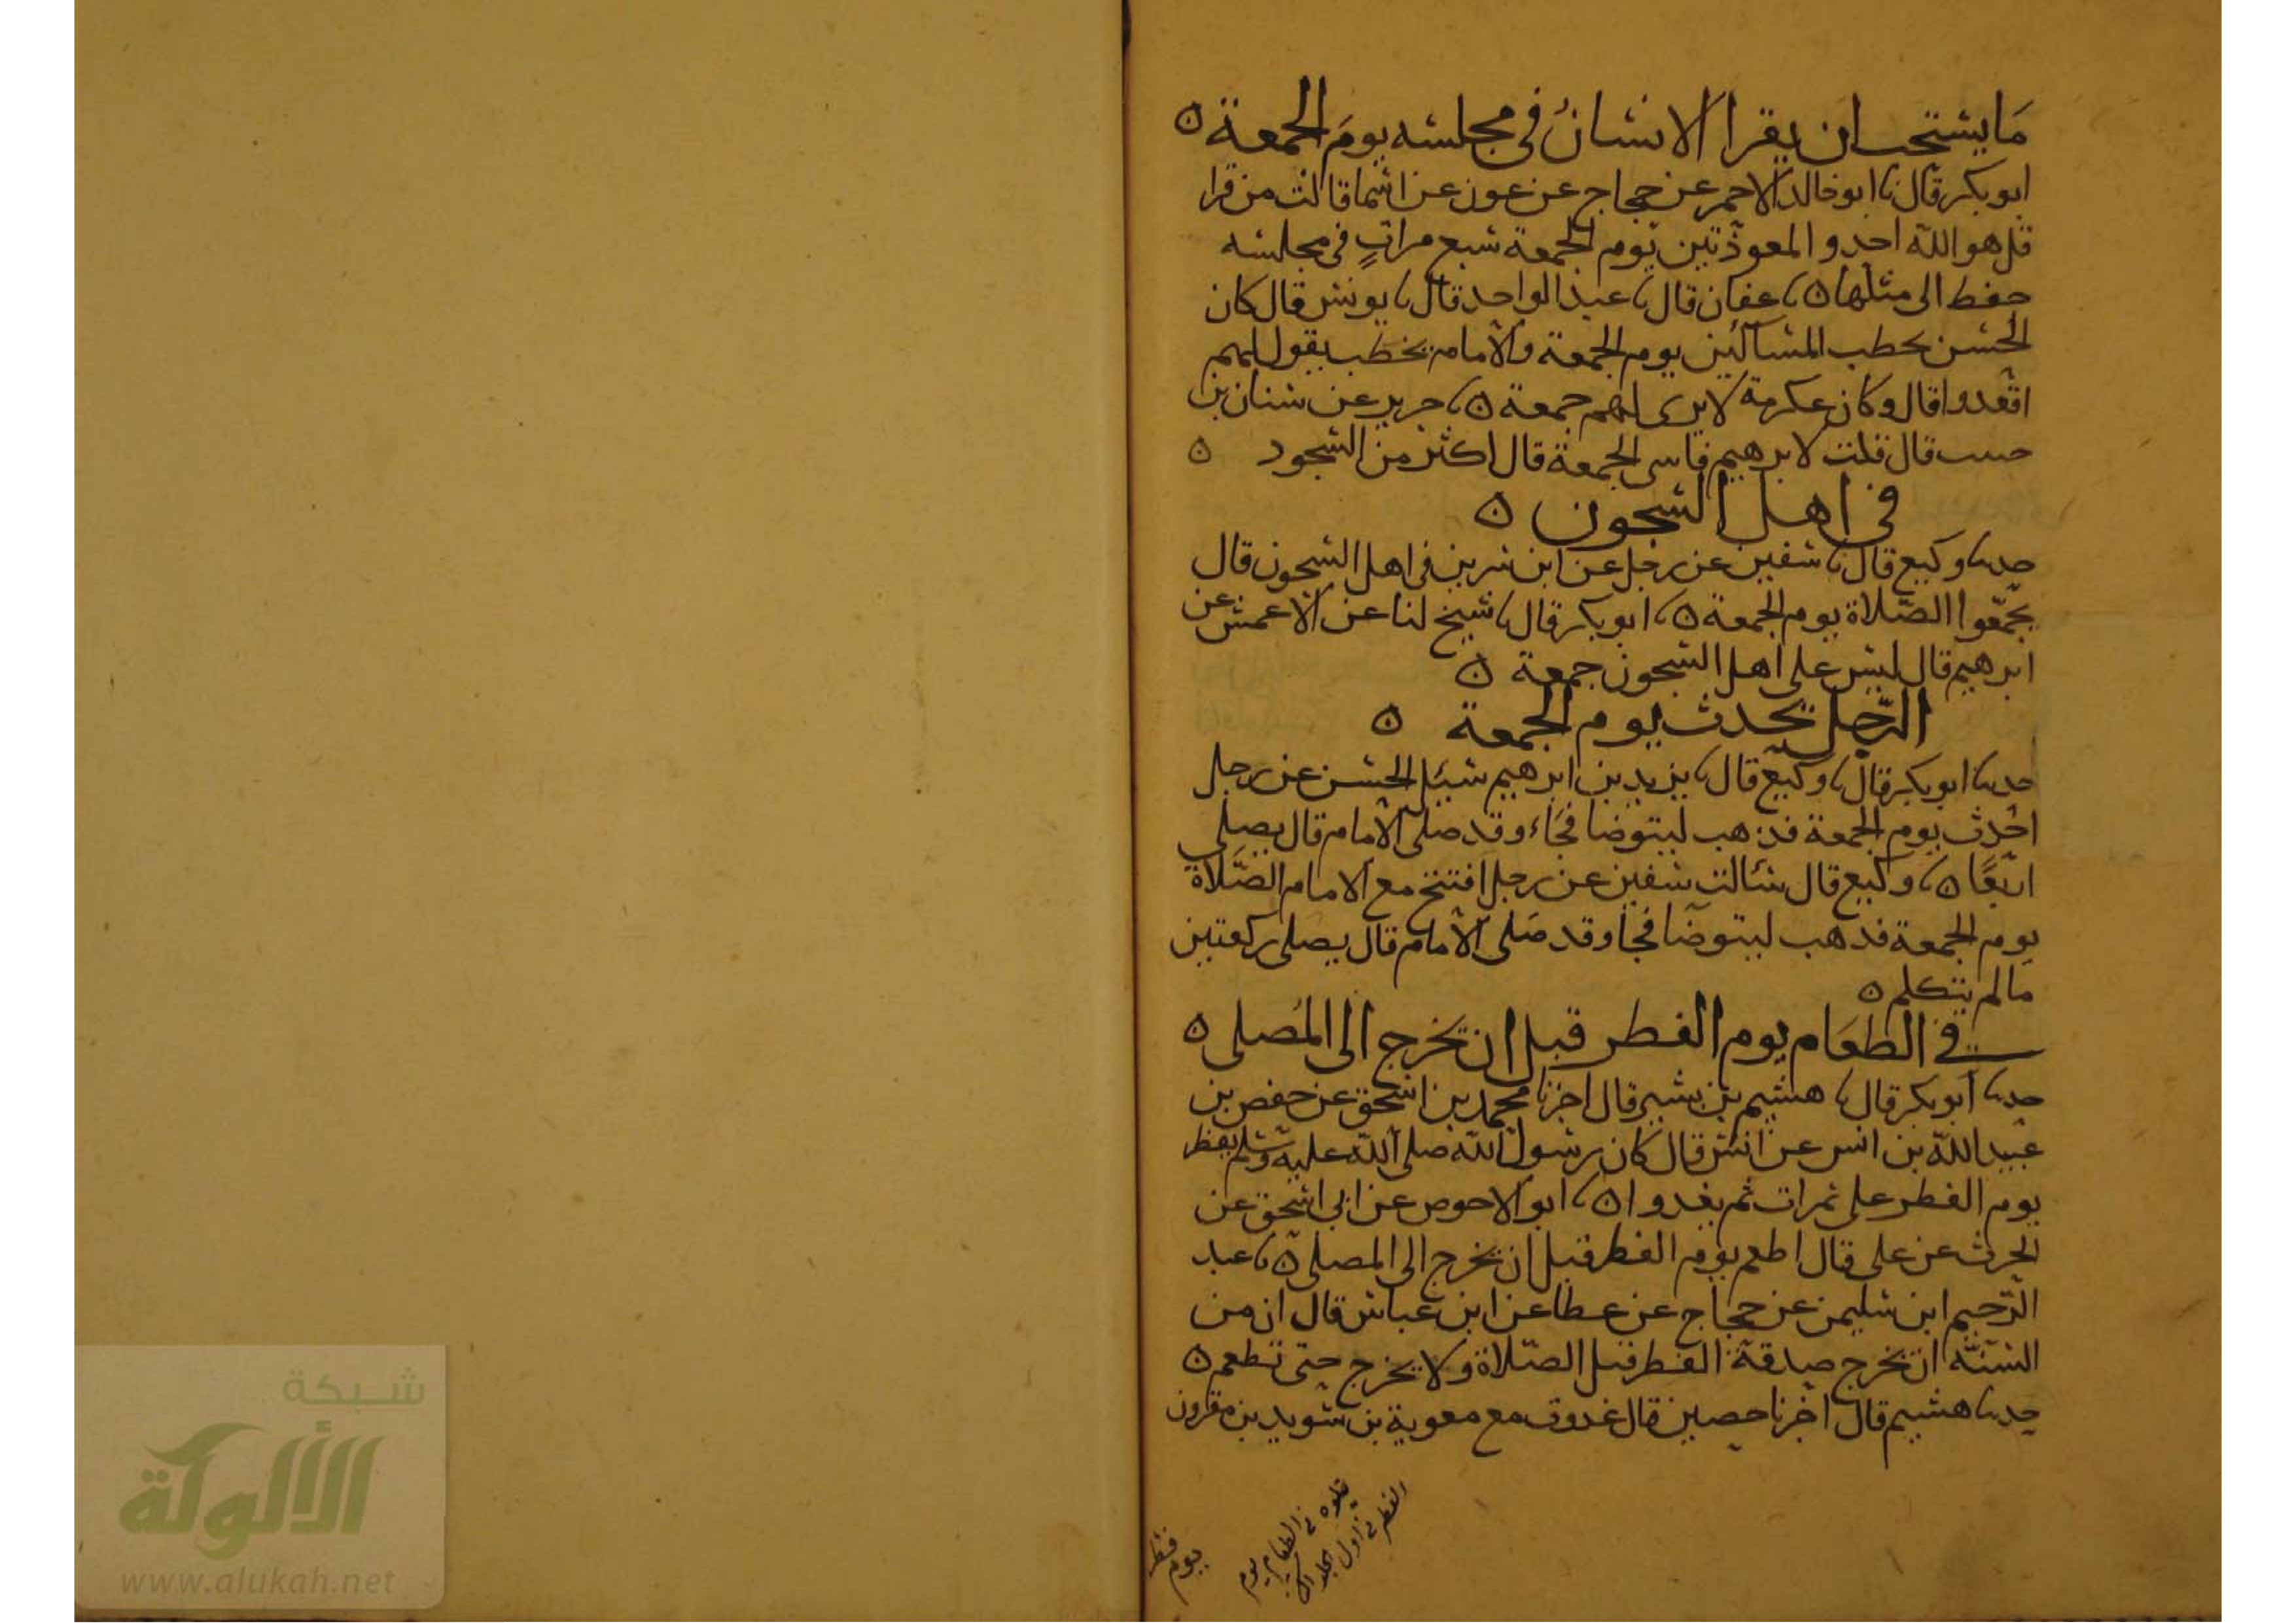 ما يستحب ان يقرا الانسان في مجلسه يوم الجمعة ه
ابو بكر قال نا ابو خالد الاحمر عن حجاج عن عون عن اسما قالت من قرا
قل هو الله احد والمعوذتين يوم الجمعة سبع مراتٍ في مجلسه
حفظ الى مثلها ه نا عفان قال نا عبد الواحد قال نا يونس قال كان
الحسن يحطب المساكين يوم الجمعة والامام يخطب يقول لهم
اقعدوا قال وكان عكرمة لا يرى لهم جمعة ه نا جرير عن سنان بن
حبيب قال قلت لابرهيم فاتني الجمعة قال اكثر من السجود ه
في اهل السجون ه
حدثنا وكيع قال نا سفين عن رجل عن ابن سرين في اهل السجون قال
يجمّعوا الصّلاة يوم الجمعة ه نا ابو بكر قال نا شيخ لنا عن الاعمش عن
ابرهيم قال ليس على اهل السجون جمعة ه
الرّجل يحدث يوم الجمعة ه
حدثنا ابو بكر قال نا وكيع قال نا يزيد بن ابرهيم سيل الحسن عن رجل
احدث يوم الجمعة فذهب ليتوضا فجاء وقد صلى الامام قال يصلي
اربعًا ه نا وكيع قال سالت سفين عن رجل افتتح مع الامام الصّلاة
يوم الجمعة فذهب ليتوضا فجا وقد صلى الامام قال يصلي ركعتين
مالم يتكلم ه
في الطعَام يوم الفطر قبل ان يخرج الى المُصلى ه
حدثنا ابو بكر قال نا هشيم بن بشير قال اخبرنا محمد بن اسحق عن حفص بن
عبيد الله بن انس عن انس قال كان رسول الله صلى الله عليه وسلم يفطر
يوم الفطر على تمرات ثم يغدوا ه نا ابو الاحوص عن ابي اسحق عن
الحرث عن علي قال اطعم يوم الفطر قبل ان يخرج الى المصلى ه نا عبد
الرّحيم ابن سليمن عن حجاج عن عطا عن ابن عباس قال ان من
السّنّة ان تخرج صدقة الفطر قبل الصّلاة ولا يخرج حتى تطعم ه
حدثنا هشيم قال اخبرنا حصين قال غدوت مع معوية بن سويد بن مقرون
يتلوه في الطعام يوم
الفطر في اول
يوم فطر
شبكة
الألوكة
www.alukah.net